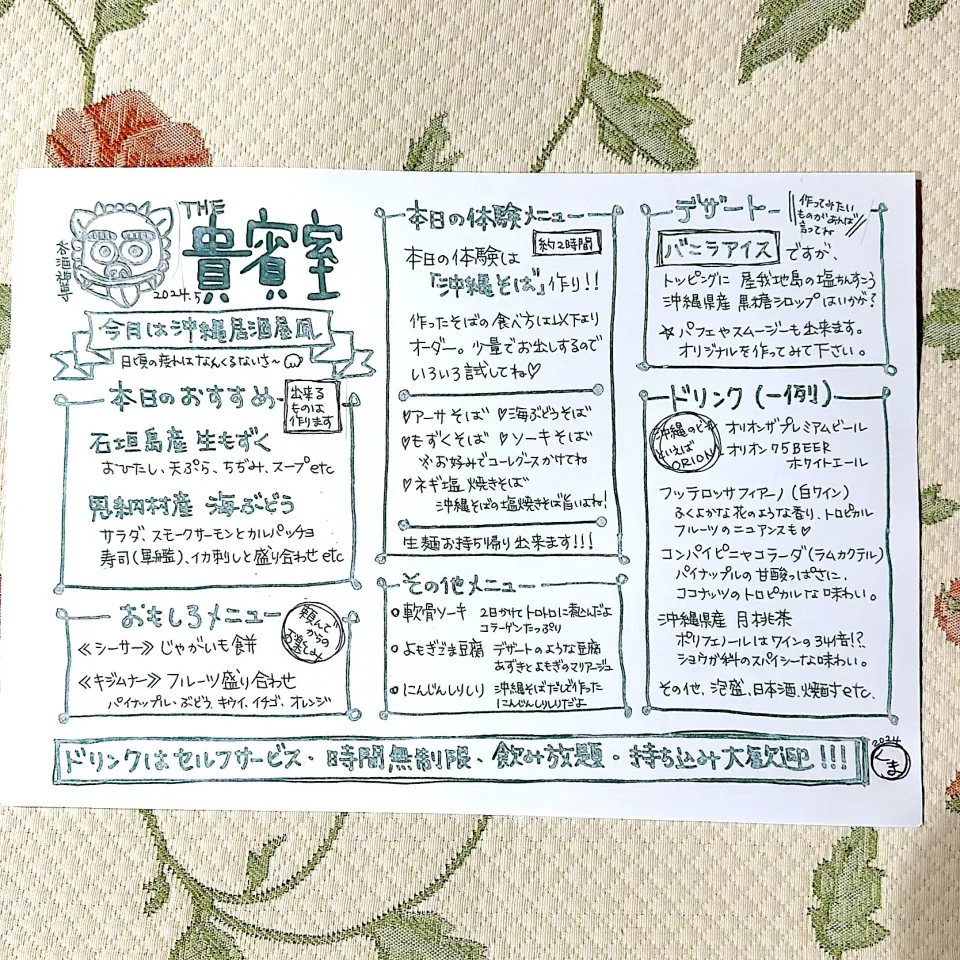 THE
貴賓室
2024.5
今月は沖縄居酒屋風
日頃の疲れはなんくるないさ〜
本日のおすすめ
出来る
ものは
作ります
石垣島産 生もずく
おひたし、天ぷら、ちぢみ、スープetc
恩納村産 海ぶどう
サラダ、スモークサーモンとカルパッチョ
寿司(軍艦)、イカ刺しと盛り合わせ etc
おもしろメニュー
頼んで
からの
お楽しみ
≪シーサー≫ じゃがいも餅
≪キジムナー≫ フルーツ盛り合わせ
パイナップル・ぶどう、キウイ、イチゴ、オレンジ
本日の体験メニュー
約2時間
本日の体験は
「沖縄そば」作り!!
作ったそばの食べ方は以下より
オーダー。少量でお出しするので
いろいろ試してね♡
♡アーサそば ♡海ぶどうそば
♡もずくそば ♡ソーキそば
※お好みでコーレグースかけてね
♡ネギ塩焼きそば
沖縄そばの塩焼きそば旨いよね!
生麺お持ち帰り出来ます!!!
その他メニュー
軟骨ソーキ 2日かけてトロトロに煮込んだよ
コラーゲンたっぷり
よもぎごま豆腐 デザートのような豆腐
あずきとよもぎのマリアージュ
にんじんしりしり 沖縄そばだしで作った
にんじんしりしりだよ
デザート
作ってみたい
ものがあれば
言ってね
バニラアイスですが、
トッピングに 屋我地島の塩ちんすこう
沖縄県産 黒糖シロップはいかが?
☆パフェやスムージーも出来ます。
オリジナルを作ってみて下さい。
ドリンク(一例)
沖縄のビール
といえば
ORION
オリオンザプレミアムビール
オリオン75BEER
ホワイトエール
フッテロッサフィアーノ(白ワイン)
ふくよかな花のような香り、トロピカル
フルーツのニュアンスも♥
コンパイピニャコラーダ(ラムカクテル)
パイナップルの甘酸っぱさに、
ココナッツのトロピカルな味わい。
沖縄県産 月桃茶
ポリフェノールはワインの34倍!?
ショウガ科のスパイシーな味わい。
その他、泡盛、日本酒、焼酎etc、
ドリンクはセルフサービス・時間無制限、飲み放題・持ち込み大歓迎!!!
2024
くま